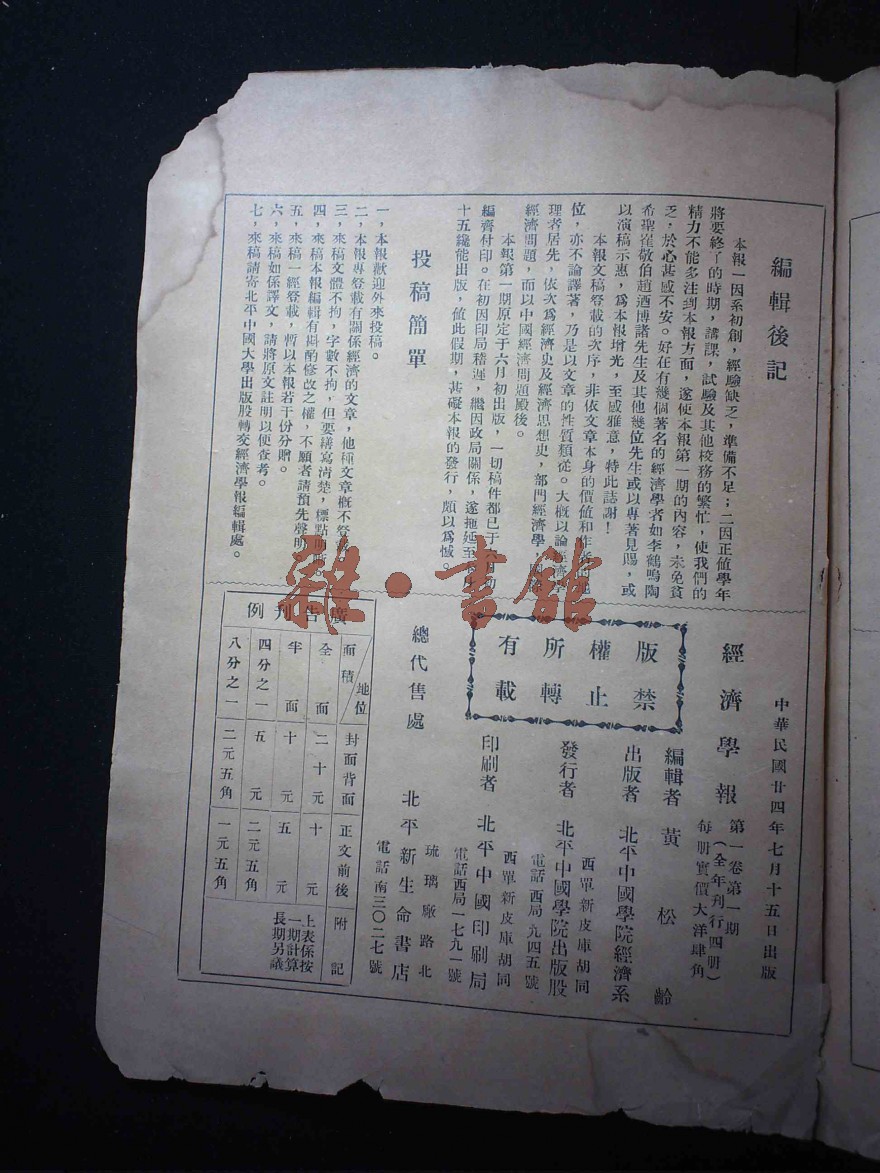 編輯後記
本報一因系初創，經驗缺乏，準備不足；二因正値學年
將要終了的時期，講課，試驗及其他校務的繁忙，使我們的
精力不能多注到本報方面，遂使本報第一期的內容，未免貧
乏，於心甚感不安。好在有幾個著名的經濟學者如李鶴鳴陶
希聖崔敬伯趙迺博諸先生及其他幾位先生或以專著見賜，或
以演稿示惠，爲本報增光，至感雅意，特此誌謝！
本報文稿登載的次序，非依文章本身的價値和作者的地
位，亦不論譯著，乃是以文章的性質類從。大槪以論經濟學
理者居先，依次爲經濟史及經濟思想史，部門經濟學，國際
經濟問題，而以中國經濟問題殿後。
本報第一期原定于六月初出版，一切稿件都已于六月初
編齊付印。在初因印局稽遲，繼因政局關係，遂拖延至
十五纔能出版，値此假期，甚礙本報的發行，頗以爲憾。
投稿簡單
一，本報歡迎外來投稿。
二，本報專登載有關係經濟的文章，他種文章槪不登載。
三，來稿文體不拘，字數不拘，但要繕寫清楚，標點明晰。
四，來稿本報編輯有斟酌修改之權，不願者請預先聲明。
五，來稿一經登載，暫以本報若干份分贈。
六，來稿如係譯文，請將原文註明以便查考。
七，來稿請寄北平中國大學出版股轉交經濟學報編輯處。
中華民國廿四年七月十五日出版
經濟學報
第一卷第一期
（全年刊行四册）
每册實價大洋肆角
編輯者 黃松齡
出版者 北平中國學院經濟系
西單新皮庫胡同
發行者 北平中國學院出版股
電話西局九四五號
西單新皮庫胡同
印刷者 北平中國印刷局
電話西局一七九一號
版權所有
禁止轉載
總代售處 北平新生命書店
琉璃廠路北
電話南三〇二七號
廣告刊例
面積 地位 封面背面 正文前後 附記
全面 二十元 十元
半面 十元 五元
四分之一 五元 二元五角
八分之一 二元五角 一元五角
上表係按
一期計算
長期另議
雜·書館